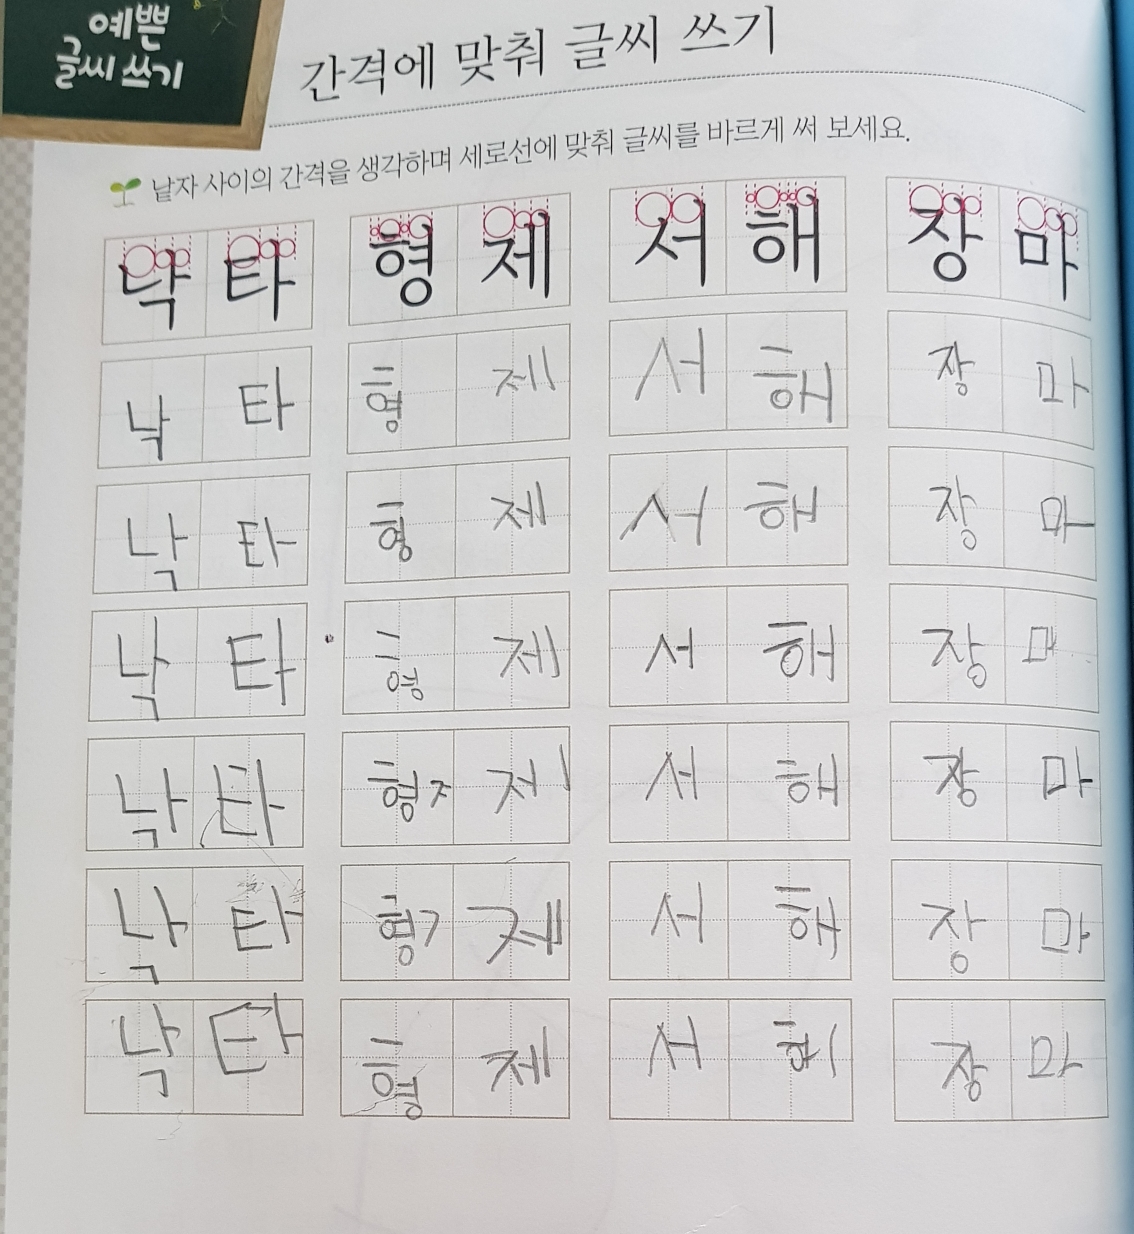 예쁜
글씨 쓰기
간격에 맞춰 글씨 쓰기
낱자 사이의 간격을 생각하며 세로선에 맞춰 글씨를 바르게 써 보세요.
낙타 형제 서해 장마
낙타 형제 서해 장마
낙타 형제 서해 장마
낙타 형제 서해 장마
낙타 형ㅈ 제 서해 장마
낙타 형ㄱ 제 서해 장마
낙타 형제 서해 장마